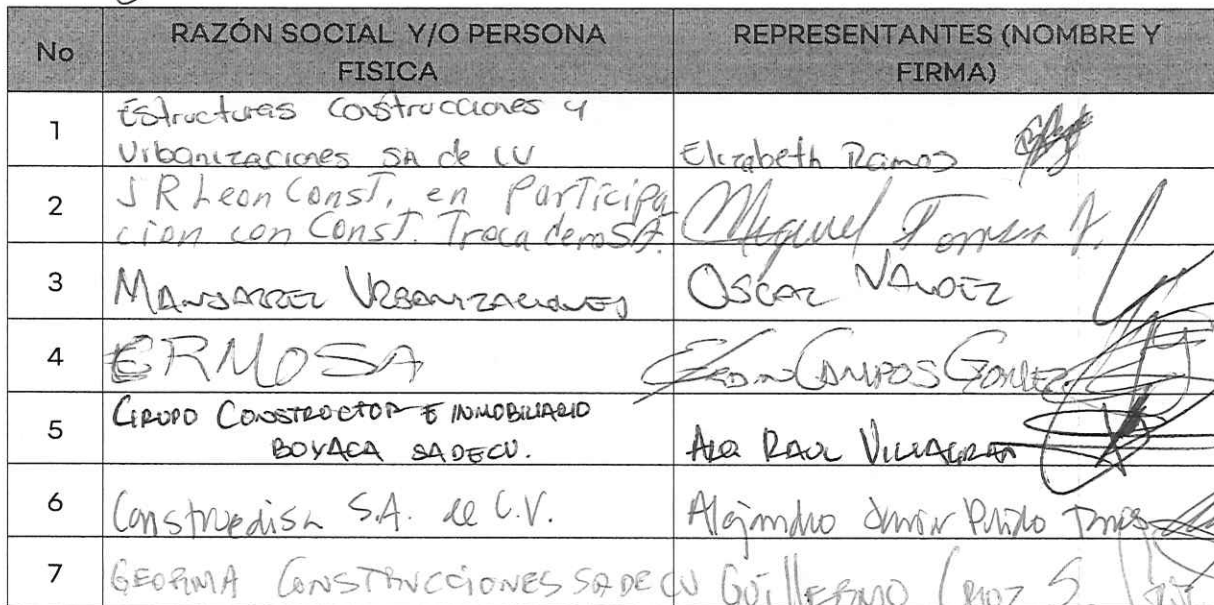 No RAZÓN SOCIAL Y/O PERSONA FISICA REPRESENTANTES (NOMBRE Y FIRMA)
1 Estructuras Construcciones y
Urbanizaciones SA de CV Elizabeth Ramos
2 J R Leon Const. en Participa
cion con Const. Trocadero SA. Miguel Torres A.
3 MANJARREZ URBANIZACIONES OSCAR VALDEZ
4 ERMOSA CAMPOS GOMEZ
5 GRUPO CONSTRUCTOR E INMOBILIARIO
BOYACA SADECV. RAUL VILLAGRAN
6 S.A. de C.V. Alejandro Pulido
7 GEORMA CONSTRUCCIONES SADECV GUILLERMO CRUZ S.